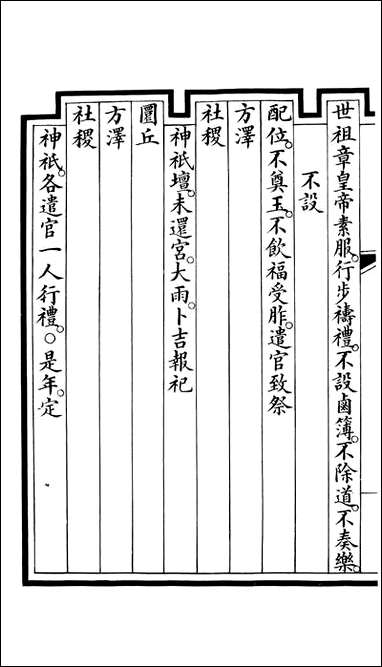 世祖章皇帝素服。行步禱禮。不設鹵簿。不除道。不奏樂。
不設
配位。不奠玉。不飲福受胙。遣官致祭
方澤
社稷
神祇壇。未還宮。大雨。卜吉報祀
圜丘
方澤
社稷
神祇。各遣官一人行禮。○是年。定